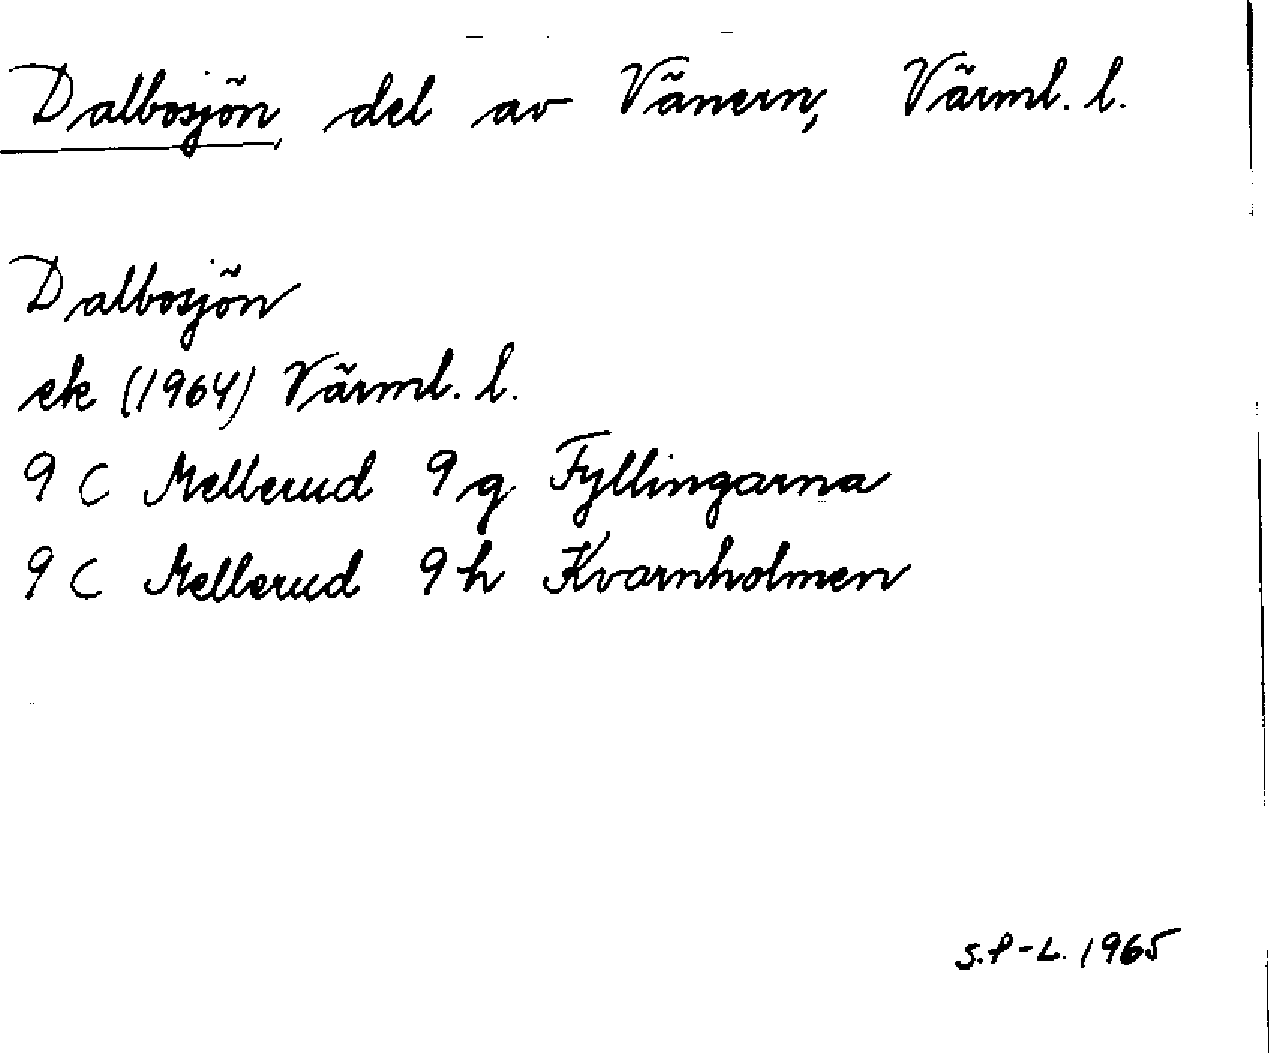 Dalbosjön, del av Vänern, Värml. l.
Dalbosjön
ek (1964) Värml. l.
9 C Mellerud 9 g Fyllingarna
9 C Mellerud 9 h Kvarnholmen
S.P-L. 1965